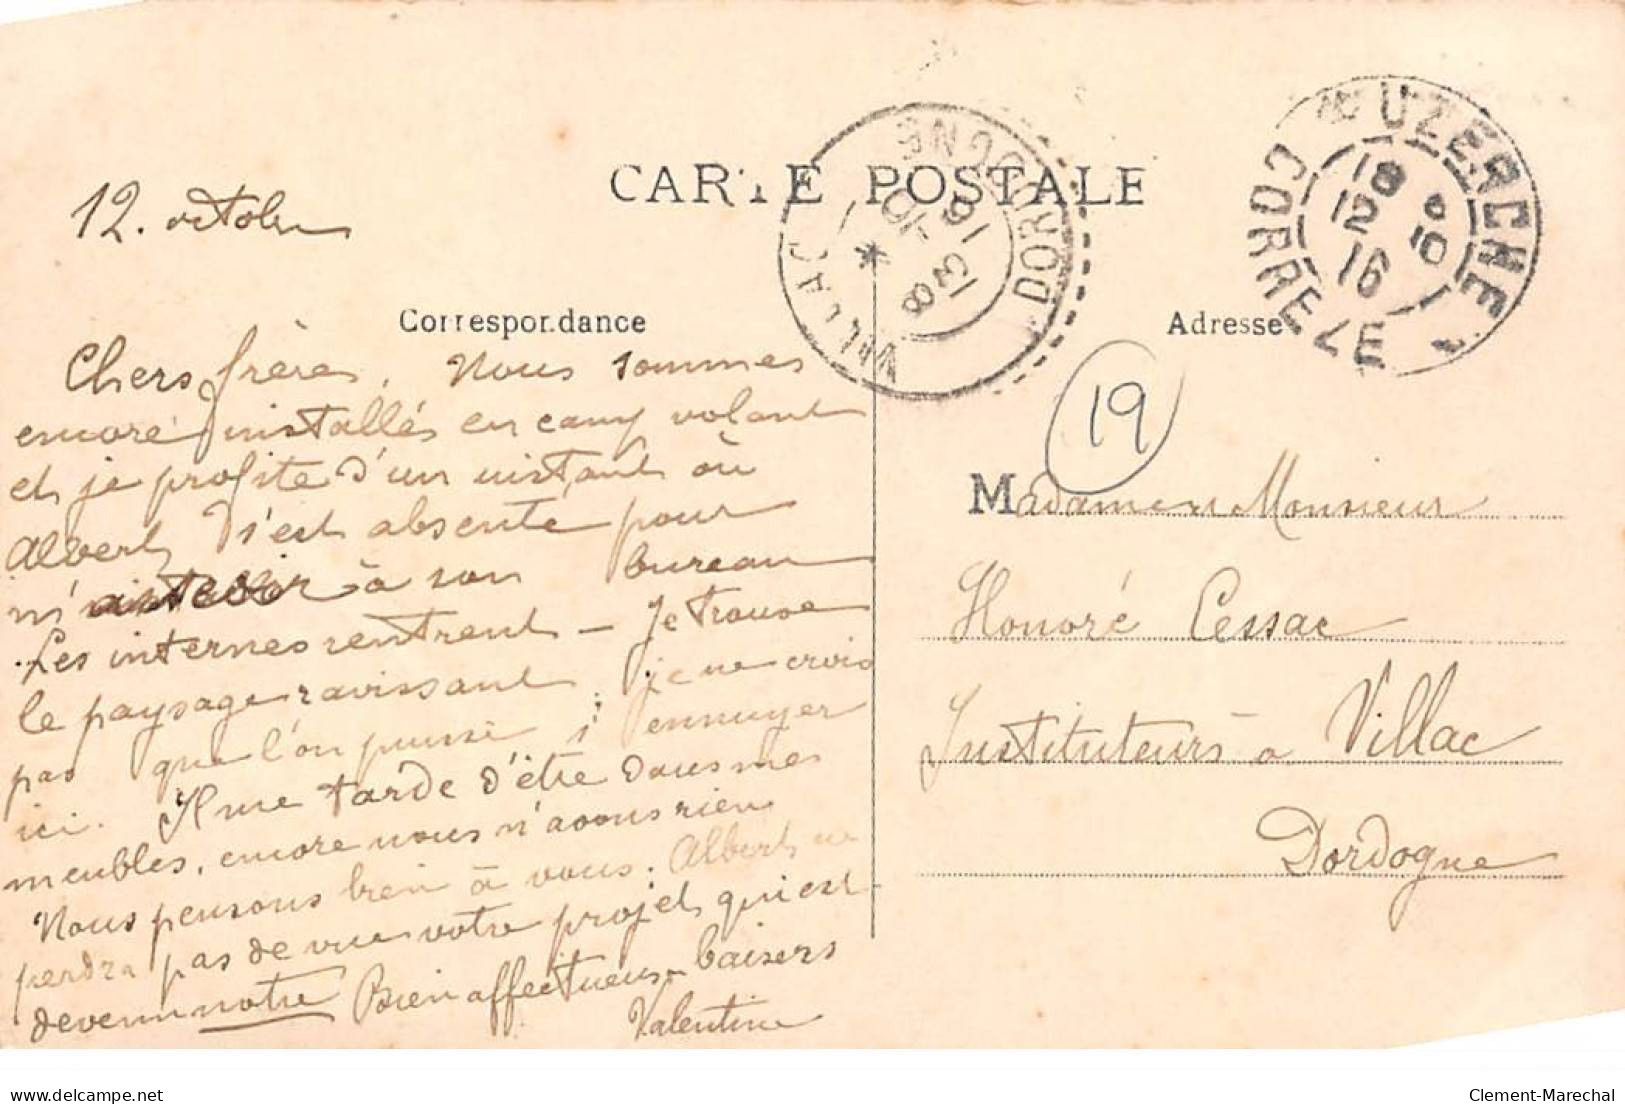 CARTE POSTALE
12. octobre
Correspondance
Adresse
VILLAC DORDOGNE
8 13 -10 16
UZERCHE CORREZE
18 12 -10 16
19
Chers frères, Nous sommes
encore installés en camp volant
et je profite d'un instant où
Albert s'est absenté pour
à son bureau
Les internes rentrent - Je trouve
le paysage ravissant, je ne crois
pas que l'on puisse s'ennuyer
ici. Il me tarde d'être dans mes
meubles, encore nous n'avons rien
Nous pensons bien à vous. Albert ne
perdra pas de vue votre projet qui est
devenu notre Bien affectueux baisers
Valentine
Madame Monsieur
Honoré Cessac
Instituteurs à Villac
Dordogne
delcampe.net
Clement-Marechal